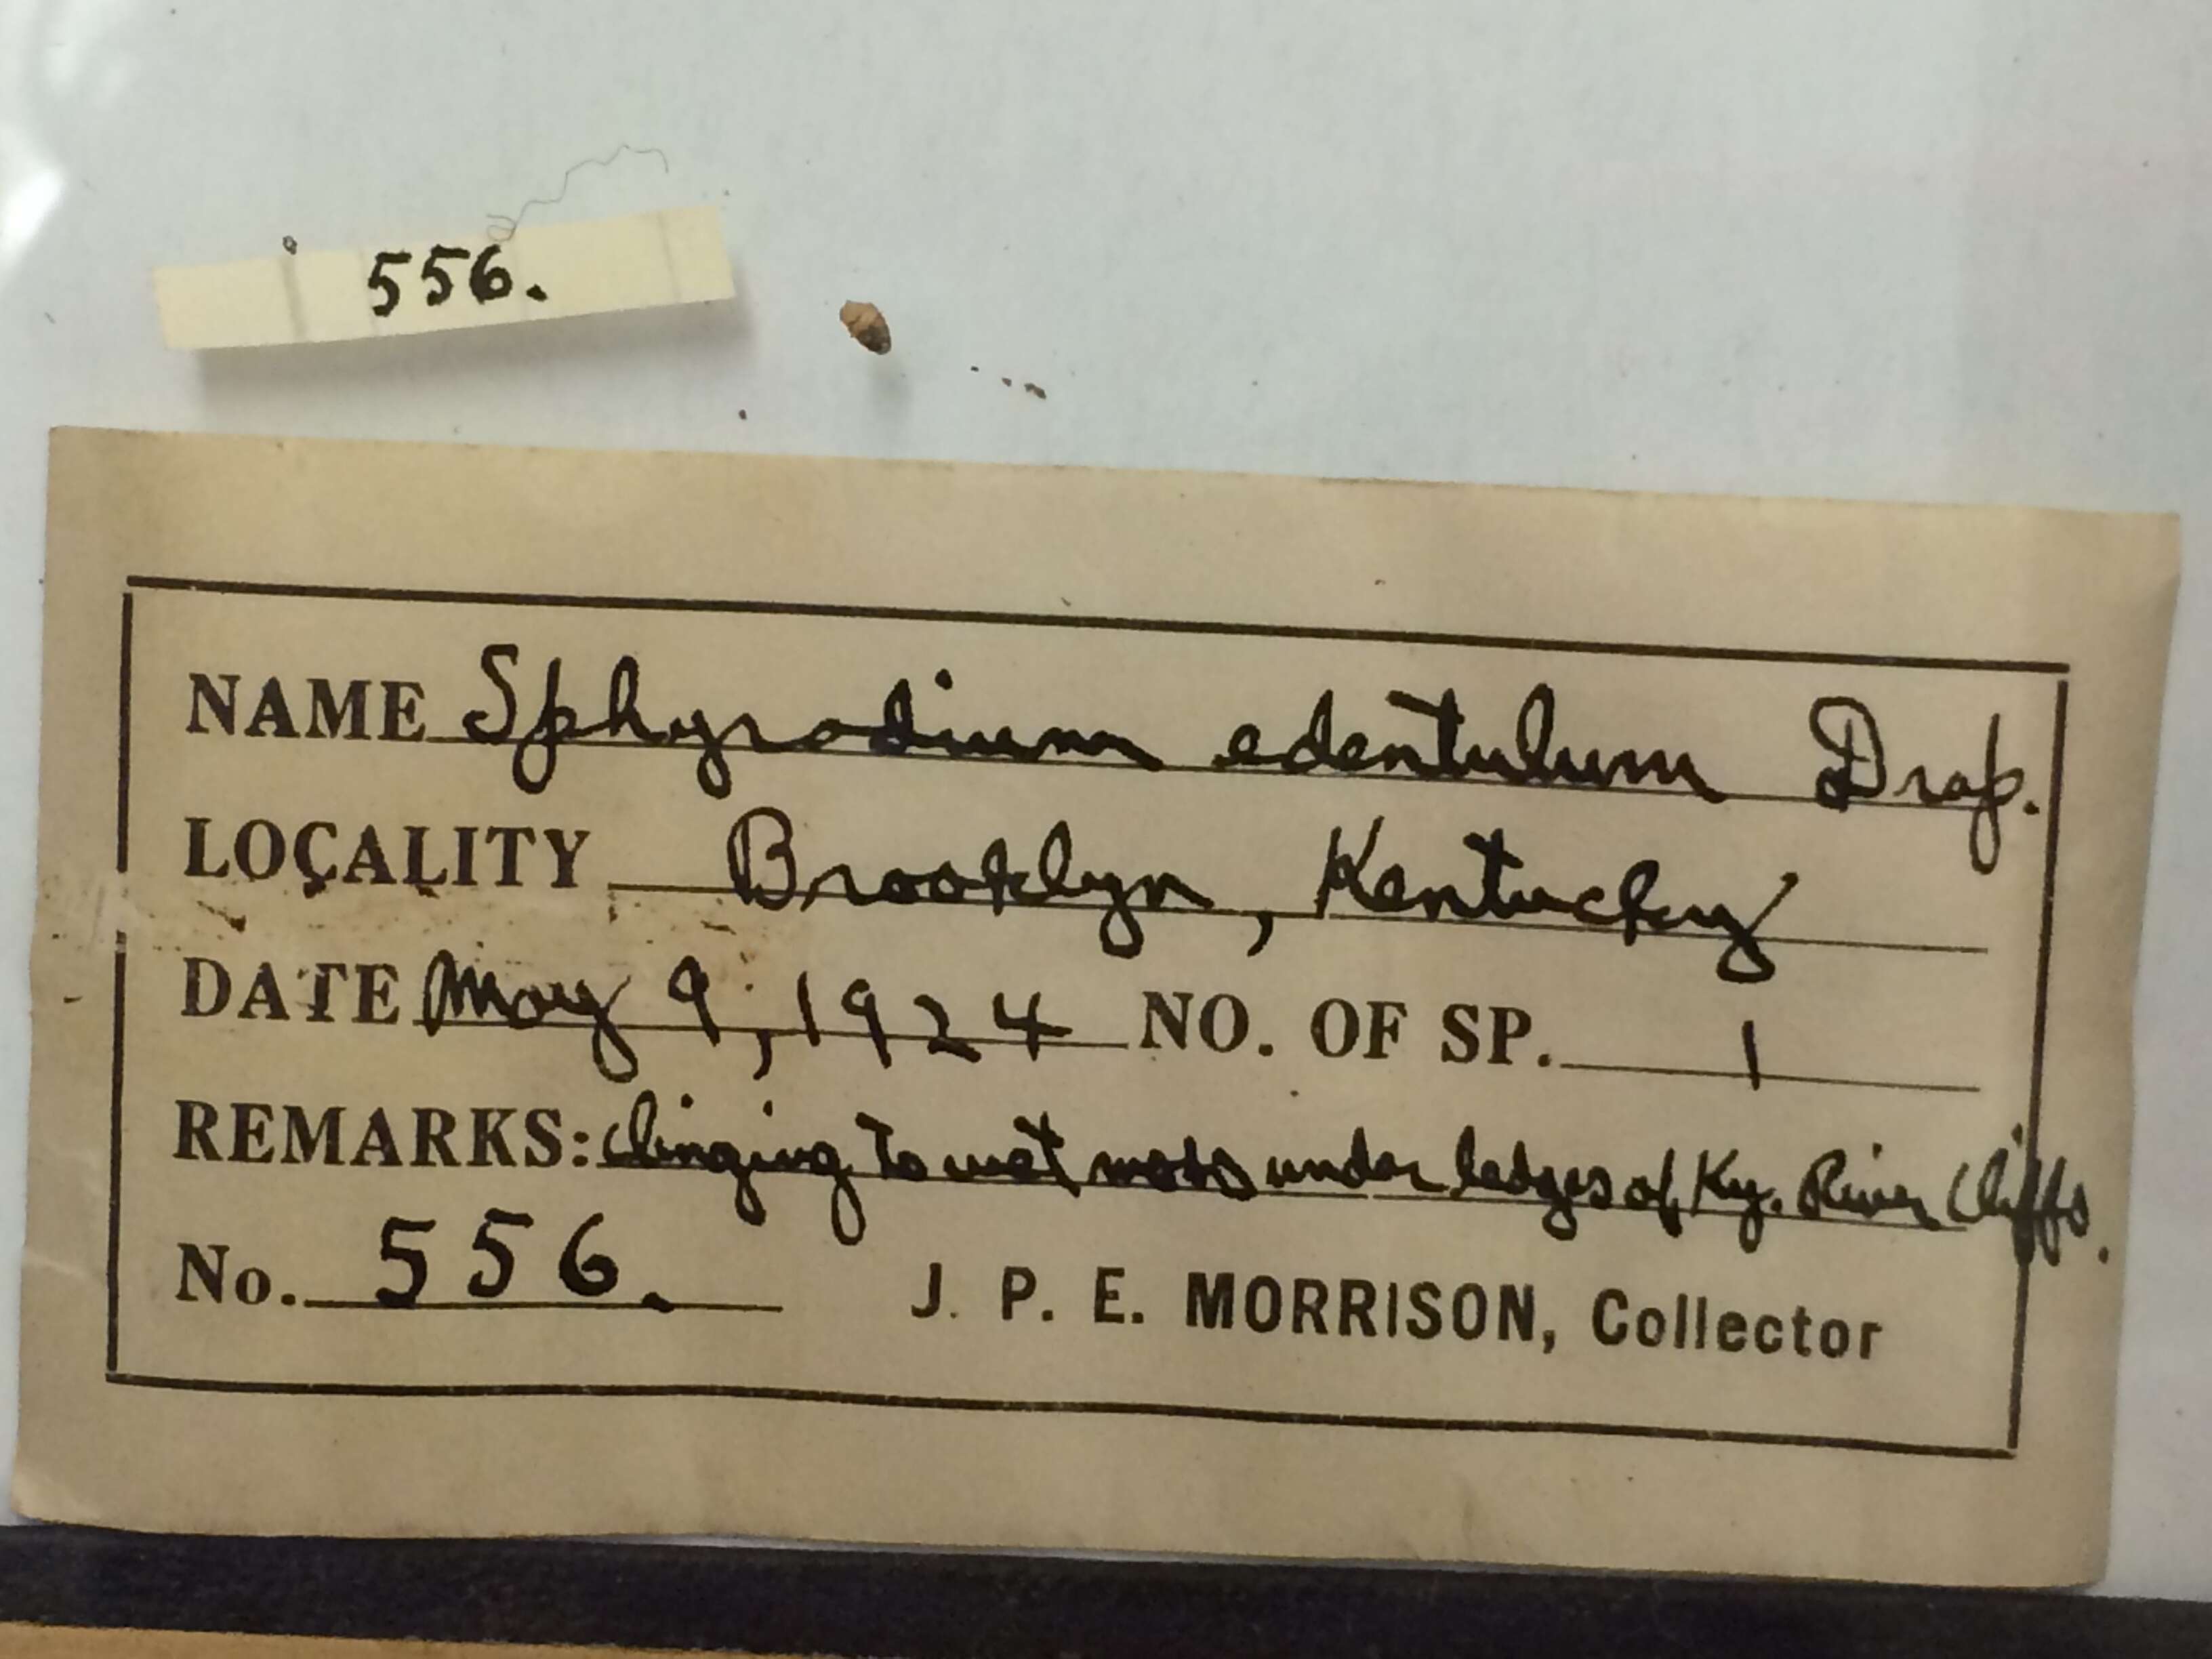 556.
NAME Sphyradium edentulum Drap.
LOCALITY Brooklyn, Kentucky
DATE May 9, 1924 NO. OF SP. 1
REMARKS: clinging to wet moss under ledges of Ky. River Cliffs.
No. 556. J. P. E. MORRISON, Collector